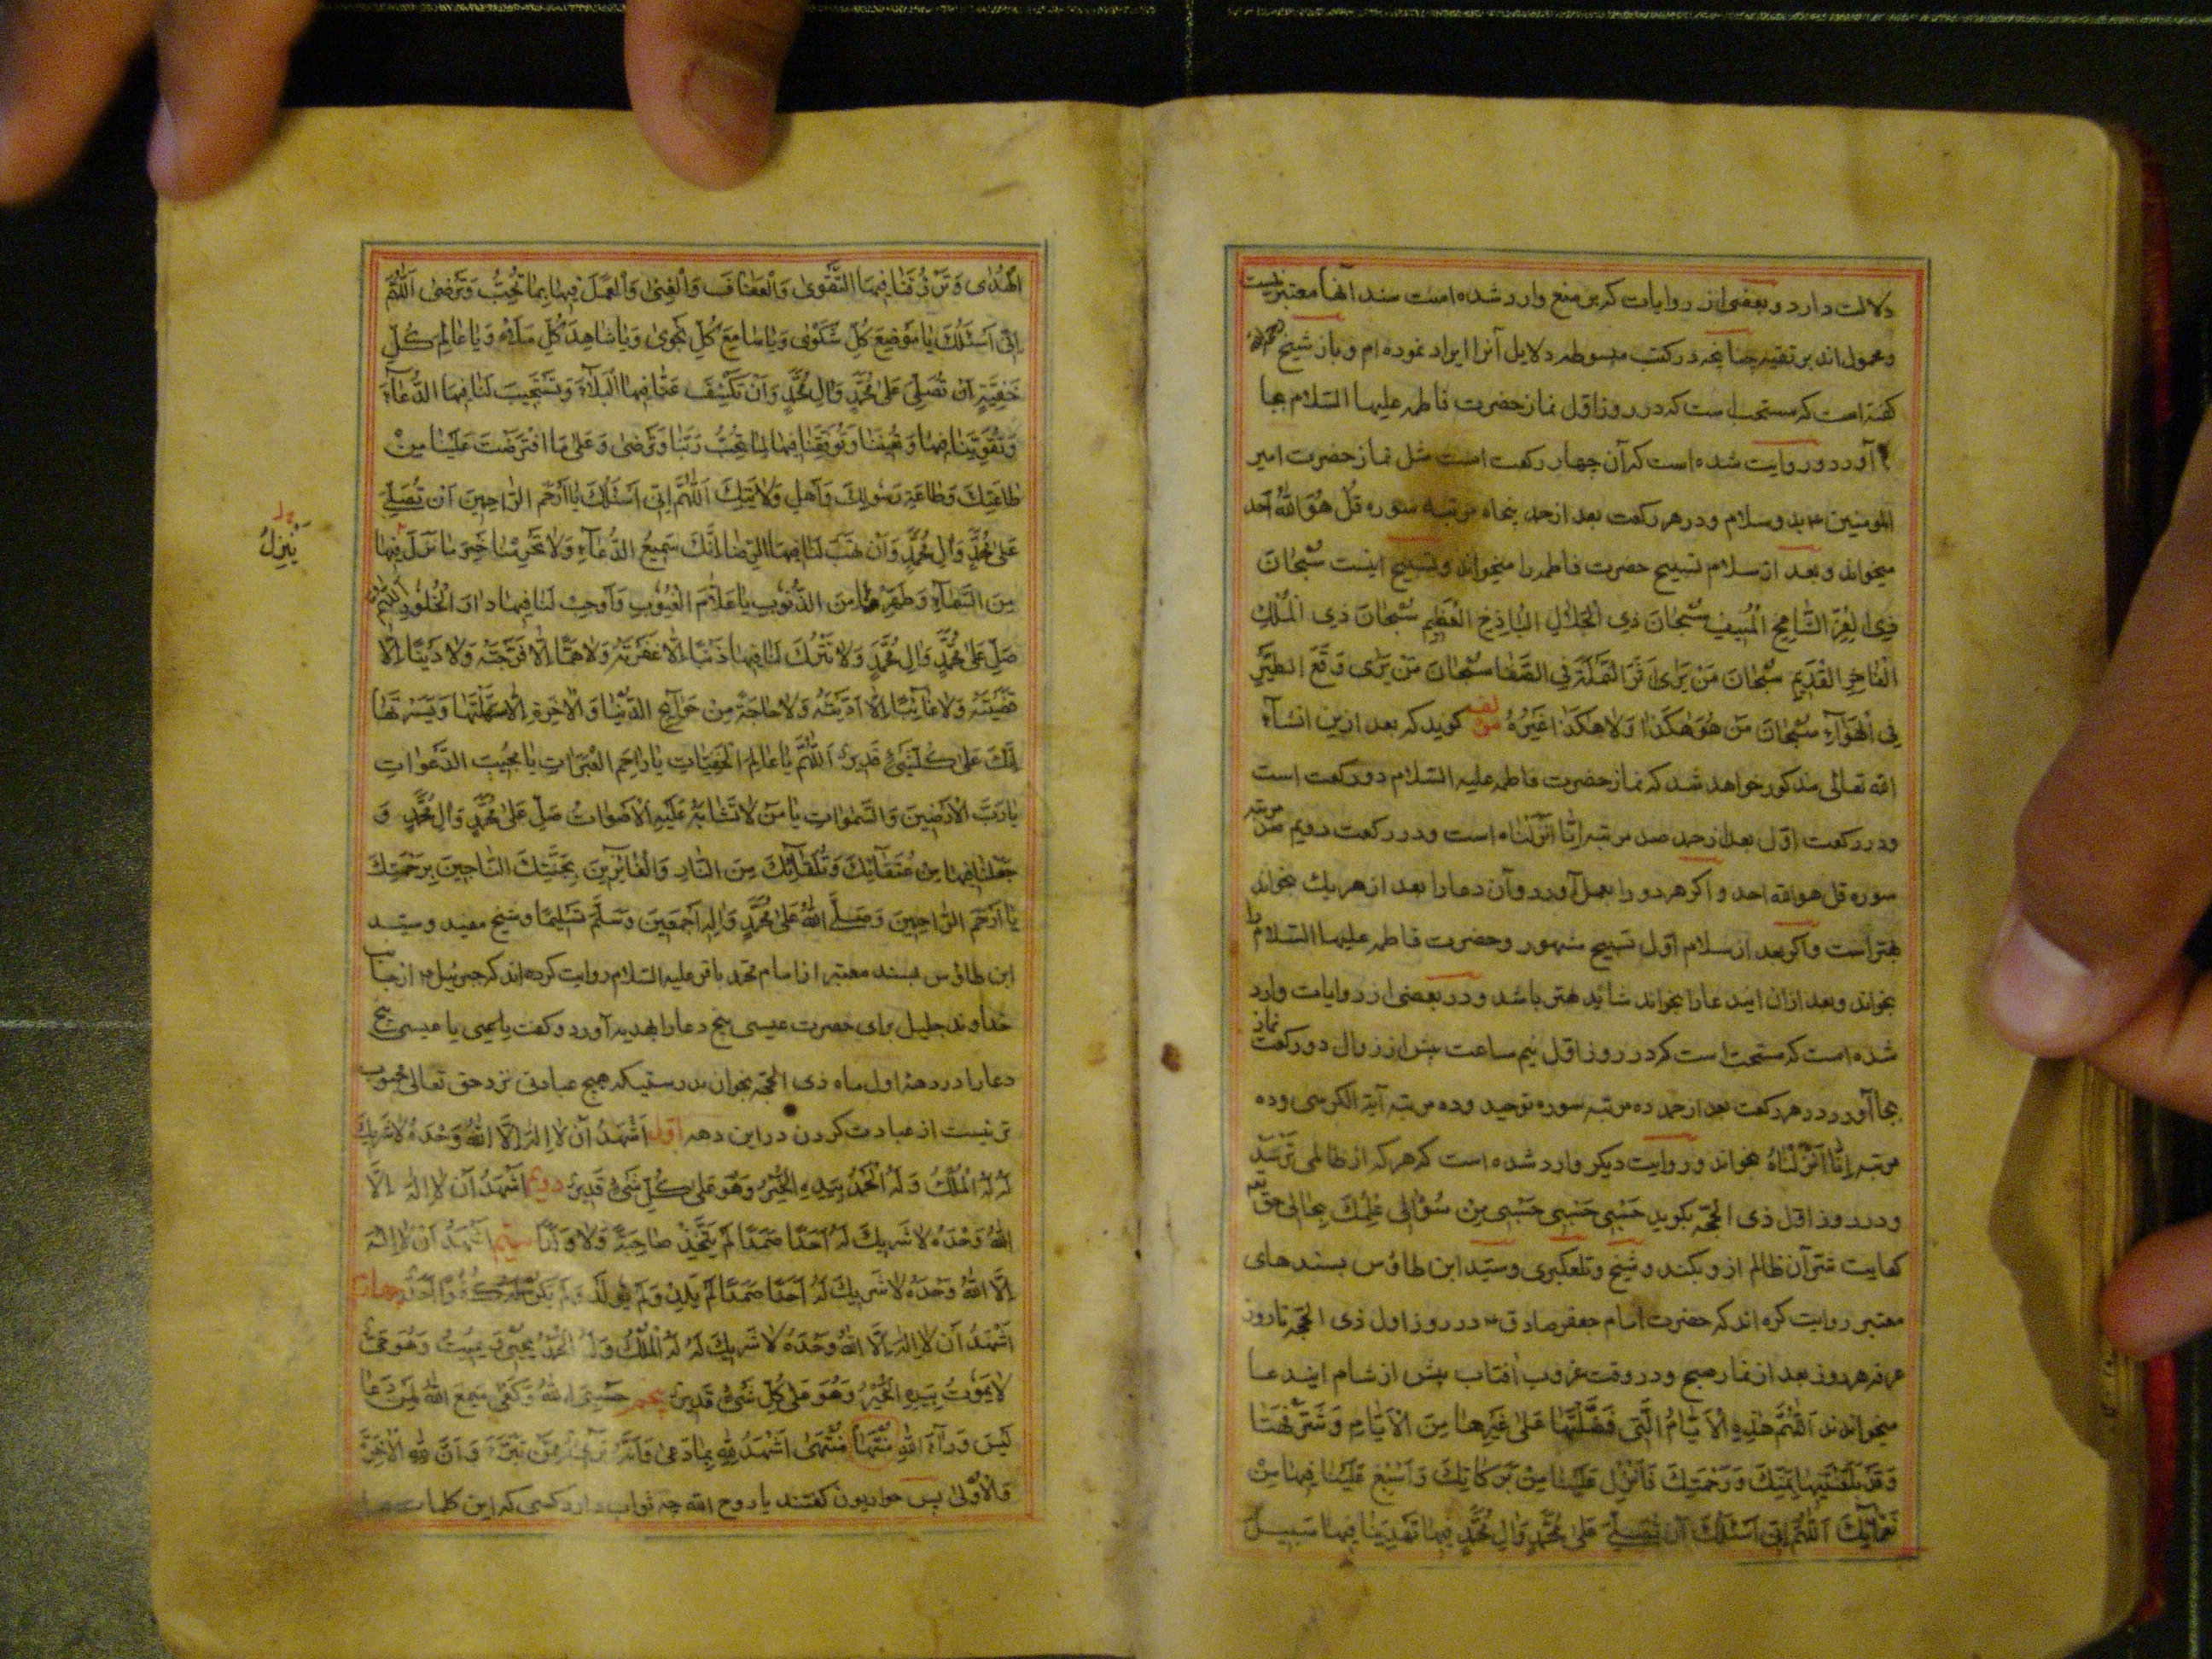 دلالت دارد و بعضی از روایات که بر منع وارد شده است سند آنها معتبر نیست
و محمول اند بر تقیه چنانچه در کتب مبسوطه دلایل آنرا ایراد نموده ام و باز شیخ
گفته است که مستحب است که در روز اول نماز حضرت فاطمه علیها السلام بجا
آورد و روایت شده است که آن چهار رکعت است مثل نماز حضرت امیر
المومنین بدو سلام و در هر رکعت بعد از حمد پنجاه مرتبه سوره قُلْ هُوَ اللّٰهُ اَحَد
میخواند و بعد از سلام تسبیح حضرت فاطمه را میخواند و تسبیح اینست سُبْحٰانَ
ذِی الْعِزِّ الشّٰامِخِ الْمُنِیفِ سُبْحٰانَ ذِی الْجَلٰالِ الْبٰاذِخِ الْعَظِیمِ سُبْحٰانَ ذِی الْمُلْکِ
الْفٰاخِرِ الْقَدِیمِ سُبْحٰانَ مَنْ یَرٰی اَثَرَ النَّمْلَةِ فِی الصَّفٰا سُبْحٰانَ مَنْ یَرٰی وَقْعَ الطَّیْرِ
فِی الْهَوٰآءِ سُبْحٰانَ مَنْ هُوَ هٰکَذٰا وَلٰا هٰکَذٰا غَیْرُهُ گوید که بعد ازین انشآء
الله تعالی مذکور خواهد شد که نماز حضرت فاطمه علیه السلام دو رکعت است
و در رکعت اوّل بعد از حمد صد مرتبه اِنّٰا اَنْزَلْنٰاه است و در رکعت دویم صد مرتبه
سوره قل هو الله احد و اگر هر دو را بعمل آورد و آن دعا را بعد از هر یک بخواند
بهتر است و اگر بعد از سلام اوّل تسبیح مشهور حضرت فاطمه علیها السلام را
بخواند و بعد از آن ایندعا را بخواند شاید بهتر باشد و در بعضی از روایات وارد
شده است که مستحب است که در روز اول نیم ساعت پیش از زوال دو رکعت نماز
بجا آورد در هر رکعت بعد از حمد ده مرتبه سوره توحید و ده مرتبه آیة الکرسی و ده
مرتبه اِنّٰا اَنْزَلْنٰاهُ بخواند و روایت دیگر وارد شده است که هر که از ظالمی ترسد
و در روز اول ذی الحجّه بگوید حَسْبِی حَسْبِی حَسْبِی مِنْ سُؤٰالِی عِلْمُكَ بِحٰالِی حق تعم
کفایت شر آن ظالم از و بکند و شیخ و تلعکبری و سیّد ابن طاؤس بسندهای
معتبر روایت کره اند که حضرت امام جعفر صادق در روز اول ذی الحجّه تا روز
عرفه هر روز بعد از نماز صبح و در وقت غروب آفتاب پیش از شام ایندعا
میخواندند اَللّٰهُمَّ هٰذِهِ الْاَیّٰامُ الَّتِی فَضَّلْتَهٰا عَلٰی غَیْرِهٰا مِنَ الْاَیّٰامِ وَ شَرَّفْتَهٰا
وَ قَدْ بَلَّغْتَنِیهٰا بِمَنِّكَ وَ رَحْمَتِكَ فَاَنْزِلْ عَلَیْنٰا مِنْ بَرَکٰاتِكَ وَ اَسْبِغْ عَلَیْنٰا فِیهٰا مِنْ
نَعْمٰآئِكَ اَللّٰهُمَّ اِنِّی اَسْئَلُكَ اَنْ تُصَلِّیَ عَلٰی مُحَمَّدٍ وَ اٰلِ مُحَمَّدٍ فِیهٰا تَهْدِیَنٰا فِیهٰا سَبِیلَ
الْهُدٰی وَ تَرْزُقَنٰا فِیهَا التَّقْوٰی وَالْعَفٰافَ وَالْغِنٰی وَالْعَمَلَ فِیهٰا بِمٰا تُحِبُّ وَ تَرْضٰی اَللّٰهُمَّ
اِنِّی اَسْئَلُكَ یٰا مَوْضِعَ کُلِّ شَکْوٰی وَ یٰا سٰامِعَ کُلِّ نَجْوٰی وَ یٰا شٰاهِدَ کُلِّ مَلَاءٍ وَ یٰا عٰالِمَ کُلِّ
خَفِیَّةٍ اَنْ تُصَلِّیَ عَلٰی مُحَمَّدٍ وَ اٰلِ مُحَمَّدٍ وَ اَنْ تَکْشِفَ عَنّٰا فِیهَا الْبَلٰآءَ وَ تَسْتَجِیبَ لَنٰا فِیهَا الدُّعٰآءَ
وَ تُقَوِّیَنٰا فِیهٰا وَ تُعِینَنٰا وَ تُوَفِّقَنٰا فِیهٰا لِمٰا تُحِبُّ رَبَّنٰا وَ تَرْضٰی وَ عَلٰی مَا افْتَرَضْتَ عَلَیْنٰا مِنْ
طٰاعَتِكَ وَ طٰاعَةِ رَسُولِكَ وَ اَهْلِ وَلٰایَتِكَ اَللّٰهُمَّ اِنِّی اَسْئَلُكَ یٰا اَرْحَمَ الرّٰاحِمِینَ اَنْ تُصَلِّیَ
عَلٰی مُحَمَّدٍ وَ اٰلِ مُحَمَّدٍ وَ اَنْ تَهَبَ لَنٰا فِیهَا الرِّضٰا اِنَّكَ سَمِیعُ الدُّعٰآءِ وَ لٰا تَحْرِمْنٰا خَیْرَ مٰا نَزَلَ فِیهٰا
یُنْزِلُ
مِنَ السَّمٰآءِ وَ طَهِّرْنٰا مِنَ الذُّنُوبِ یٰا عَلّٰامَ الْغُیُوبِ وَ اَوْجِبْ لَنٰا فِیهٰا دٰارَ الْخُلُودِ اَللّٰهُمَّ
صَلِّ عَلٰی مُحَمَّدٍ وَ اٰلِ مُحَمَّدٍ وَ لٰا تَتْرُكْ لَنٰا فِیهٰا ذَنْبًا اِلّٰا غَفَرْتَهُ وَ لٰا هَمًّا اِلّٰا فَرَّجْتَهُ وَ لٰا دَیْنًا اِلّٰا
قَضَیْتَهُ وَ لٰا غٰآئِبًا اِلّٰا اَدَّیْتَهُ وَ لٰا حٰاجَةً مِنْ حَوٰآئِجِ الدُّنْیٰا وَ الْاٰخِرَةِ اِلّٰا سَهَّلْتَهٰا وَ یَسَّرْتَهٰا
اِنَّكَ عَلٰی کُلِّ شَیْءٍ قَدِیرٌ اَللّٰهُمَّ یٰا عٰالِمَ الْخَفِیّٰاتِ یٰا رٰاحِمَ الْعَبَرٰاتِ یٰا مُجِیبَ الدَّعَوٰاتِ
یٰا رَبَّ الْاَرَضِینَ وَ السَّمٰوٰاتِ یٰا مَنْ لٰا تَتَشٰابَهُ عَلَیْهِ الْاَصْوٰاتُ صَلِّ عَلٰی مُحَمَّدٍ وَ اٰلِ مُحَمَّدٍ وَ
جْعَلْنٰا فِیهٰا مِنْ عُتَقٰآئِكَ وَ طُلَقٰآئِكَ مِنَ النّٰارِ وَ الْفٰآئِزِینَ بِجَنَّتِكَ النّٰاجِینَ بِرَحْمَتِكَ
یٰا اَرْحَمَ الرّٰاحِمِینَ وَ صَلَّی اللّٰهُ عَلٰی مُحَمَّدٍ وَ اٰلِهِ اَجْمَعِینَ وَ سَلَّمَ تَسْلِیمًا و شیخ مفید و سیّد
ابن طاؤس بسند معتبر از امام محمد باقر علیه السلام روایت کرده اند که جبرئیل از جناب
خداوند جلیل برای حضرت عیسی پنج دعا را بهدیه آورد و گفت یا عیسی پنج
دعا را در دهه اول ماه ذی الحجّه بخوان بدرستیکه هیچ عبادتی نزد حق تعالی محبوب
تر نیست از عبادت کردن در این دهه اوّل اَشْهَدُ اَنْ لٰا اِلٰهَ اِلَّا اللّٰهُ وَحْدَهُ لٰا شَرِیكَ
لَهُ لَهُ الْمُلْكُ وَ لَهُ الْحَمْدُ بِیَدِهِ الْخَیْرُ وَ هُوَ عَلٰی کُلِّ شَیْءٍ قَدِیرٌ دویم اَشْهَدُ اَنْ لٰا اِلٰهَ اِلَّا
اللّٰهُ وَحْدَهُ لٰا شَرِیكَ لَهُ اَحَدًا صَمَدًا لَمْ یَتَّخِذْ صٰاحِبَةً وَ لٰا وَلَدًا سیّم اَشْهَدُ اَنْ لٰا اِلٰهَ
اِلَّا اللّٰهُ وَحْدَهُ لٰا شَرِیكَ لَهُ اَحَدًا صَمَدًا لَمْ یَلِدْ وَ لَمْ یُولَدْ وَ لَمْ یَکُنْ لَهُ کُفُوًا اَحَدٌ چهارم
اَشْهَدُ اَنْ لٰا اِلٰهَ اِلَّا اللّٰهُ وَحْدَهُ لٰا شَرِیكَ لَهُ لَهُ الْمُلْكُ وَ لَهُ الْحَمْدُ یُحْیِی وَ یُمِیتُ وَ هُوَ حَیٌّ
لٰا یَمُوتُ بِیَدِهِ الْخَیْرُ وَ هُوَ عَلٰی کُلِّ شَیْءٍ قَدِیرٌ پنجم حَسْبِیَ اللّٰهُ وَ کَفٰی سَمِعَ اللّٰهُ لِمَنْ دَعٰا
لَیْسَ وَرٰآءَ اللّٰهِ مُنْتَهٰی اَشْهَدُ لِلّٰهِ بِمٰا دَعٰی وَ اَنَّهُ بَرِیءٌ مِمَّنْ تَبَرَّءَ وَ اَنَّ لِلّٰهِ الْاٰخِرَةَ
وَ الْاُوْلٰی پس حواریون گفتند یا روح الله چه ثواب دارد کسی که این کلمات